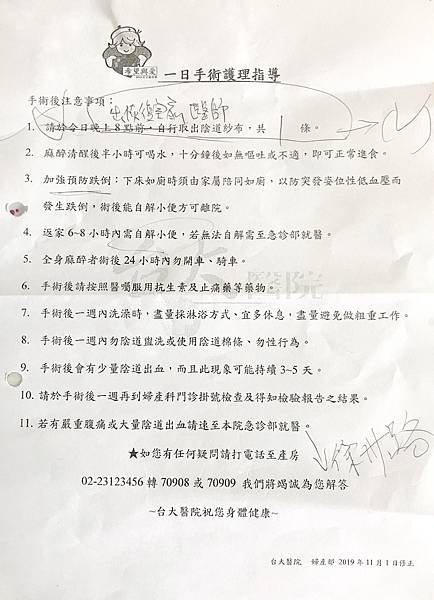 希望與愛
一日手術護理指導
手術後注意事項：
1. 請於今日晚上8點前，自行取出陰道紗布，共 1 條。
2. 麻醉清醒後半小時可喝水，十分鐘後如無嘔吐或不適，即可正常進食。
3. 加強預防跌倒：下床如廁時須由家屬陪同如廁，以防突發姿位性低血壓而
發生跌倒，術後能自解小便方可離院。
4. 返家6~8小時內需自解小便，若無法自解需至急診部就醫。
5. 全身麻醉者術後24小時內勿開車、騎車。
6. 手術後請按照醫囑服用抗生素及止痛藥等藥物。
7. 手術後一週內洗澡時，盡量採淋浴方式、宜多休息，盡量避免做粗重工作。
8. 手術後一週內勿陰道盥洗或使用陰道棉條、勿性行為。
9. 手術後會有少量陰道出血，而且此現象可能持續3~5天。
10. 請於手術後一週再到婦產科門診掛號檢查及得知檢驗報告之結果。
11. 若有嚴重腹痛或大量陰道出血請速至本院急診部就醫。
★如您有任何疑問請打電話至產房
02-23123456 轉 70908 或 70909 我們將竭誠為您解答
~台大醫院祝您身體健康~
台大醫院 婦產部 2019年11月1日修正
台大醫院